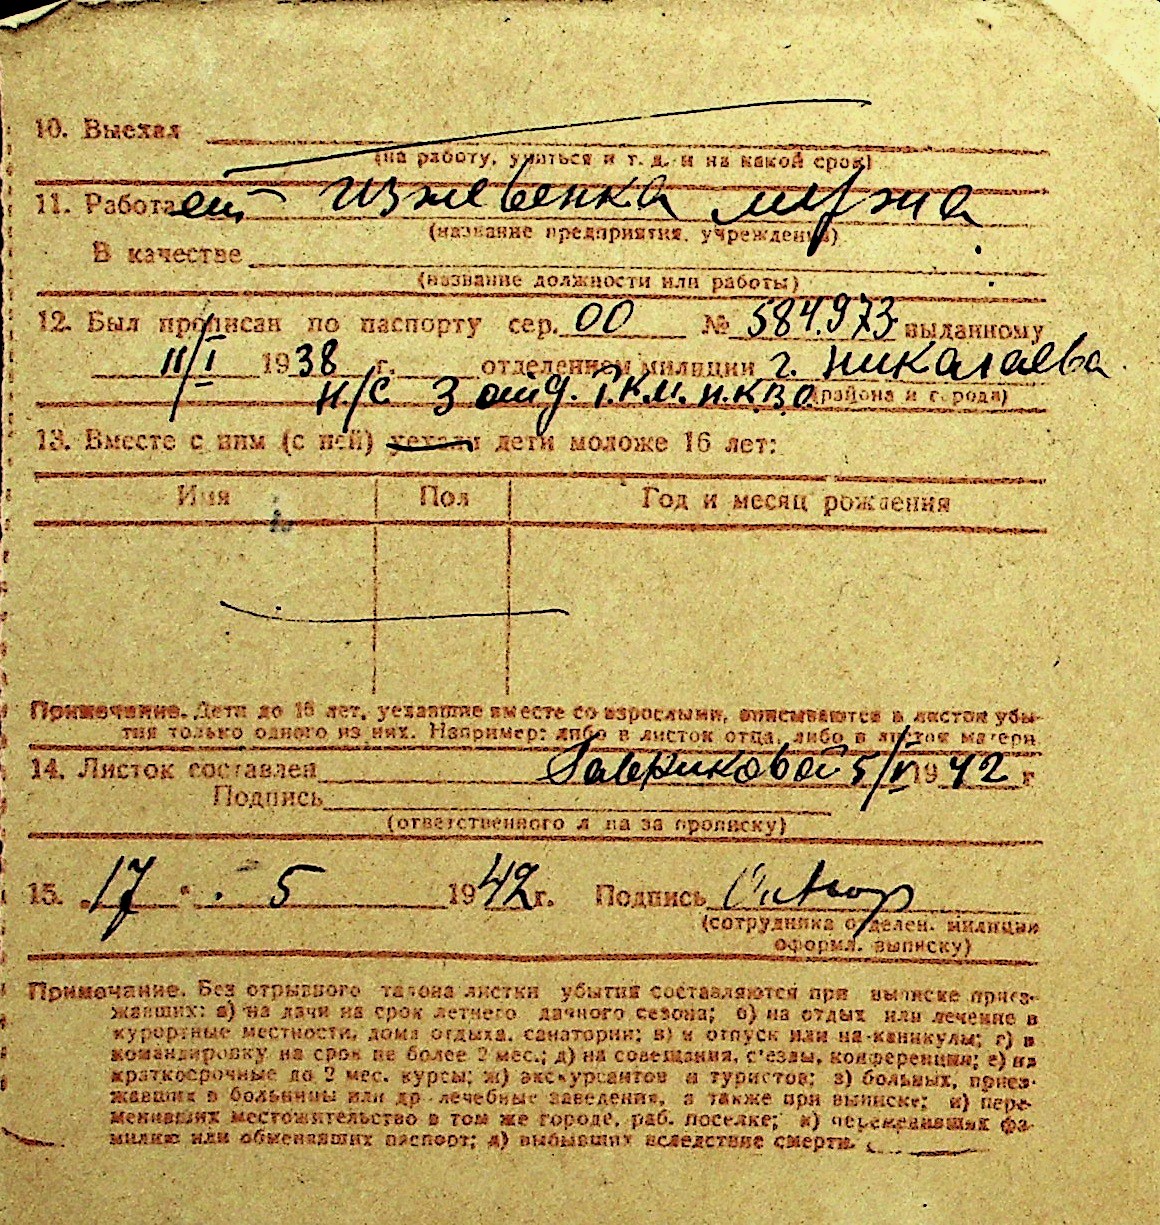 10. Выехал
(на работу, учиться и т. д. и на какой срок)
11. Работает иждивенка мужа
(название предприятия, учреждения)
В качестве
(название должности или работы)
12. Был прописан по паспорту сер. 00 № 584.973 выданному
11/I 1938 г. отделением милиции г. Николаева
н/с 3 отд. Г.К.М. Н.К.В.Д. (района и города)
13. Вместе с ним (с ней) уехали дети моложе 16 лет:
Имя Пол Год и месяц рождения
Примечание. Дети до 16 лет, уехавшие вместе со взрослыми, вписываются в листок убы-
тия только одного из них. Например: либо в листок отца, либо в листок матери
14. Листок составлен Гавриковой 5/V 1942 г
Подпись
(ответственного л па за прописку)
15. 17 5 1942 г. Подпись
(сотрудника отделен. милиции
оформл. выписку)
Примечание. Без отрывного талона листки убытия составляются при выписке приез-
жавших: а) на дачи на срок летнего дачного сезона; б) на отдых или лечение в
курортные местности, дома отдыха, санатории; в) в отпуск или на-каникулы; г) в
командировку на срок не более 2 мес.; д) на совещания, с'езды, конференции; е) на
краткосрочные до 2 мес. курсы; ж) экскурсантов и туристов; з) больных, приез-
жавших в больницы или др лечебные заведения, а также при выписке; и) пере-
менивших местожительство в том же городе, раб. поселке; к) переменивших фа-
милию или обменявших паспорт; л) выбывших вследствие смерти.